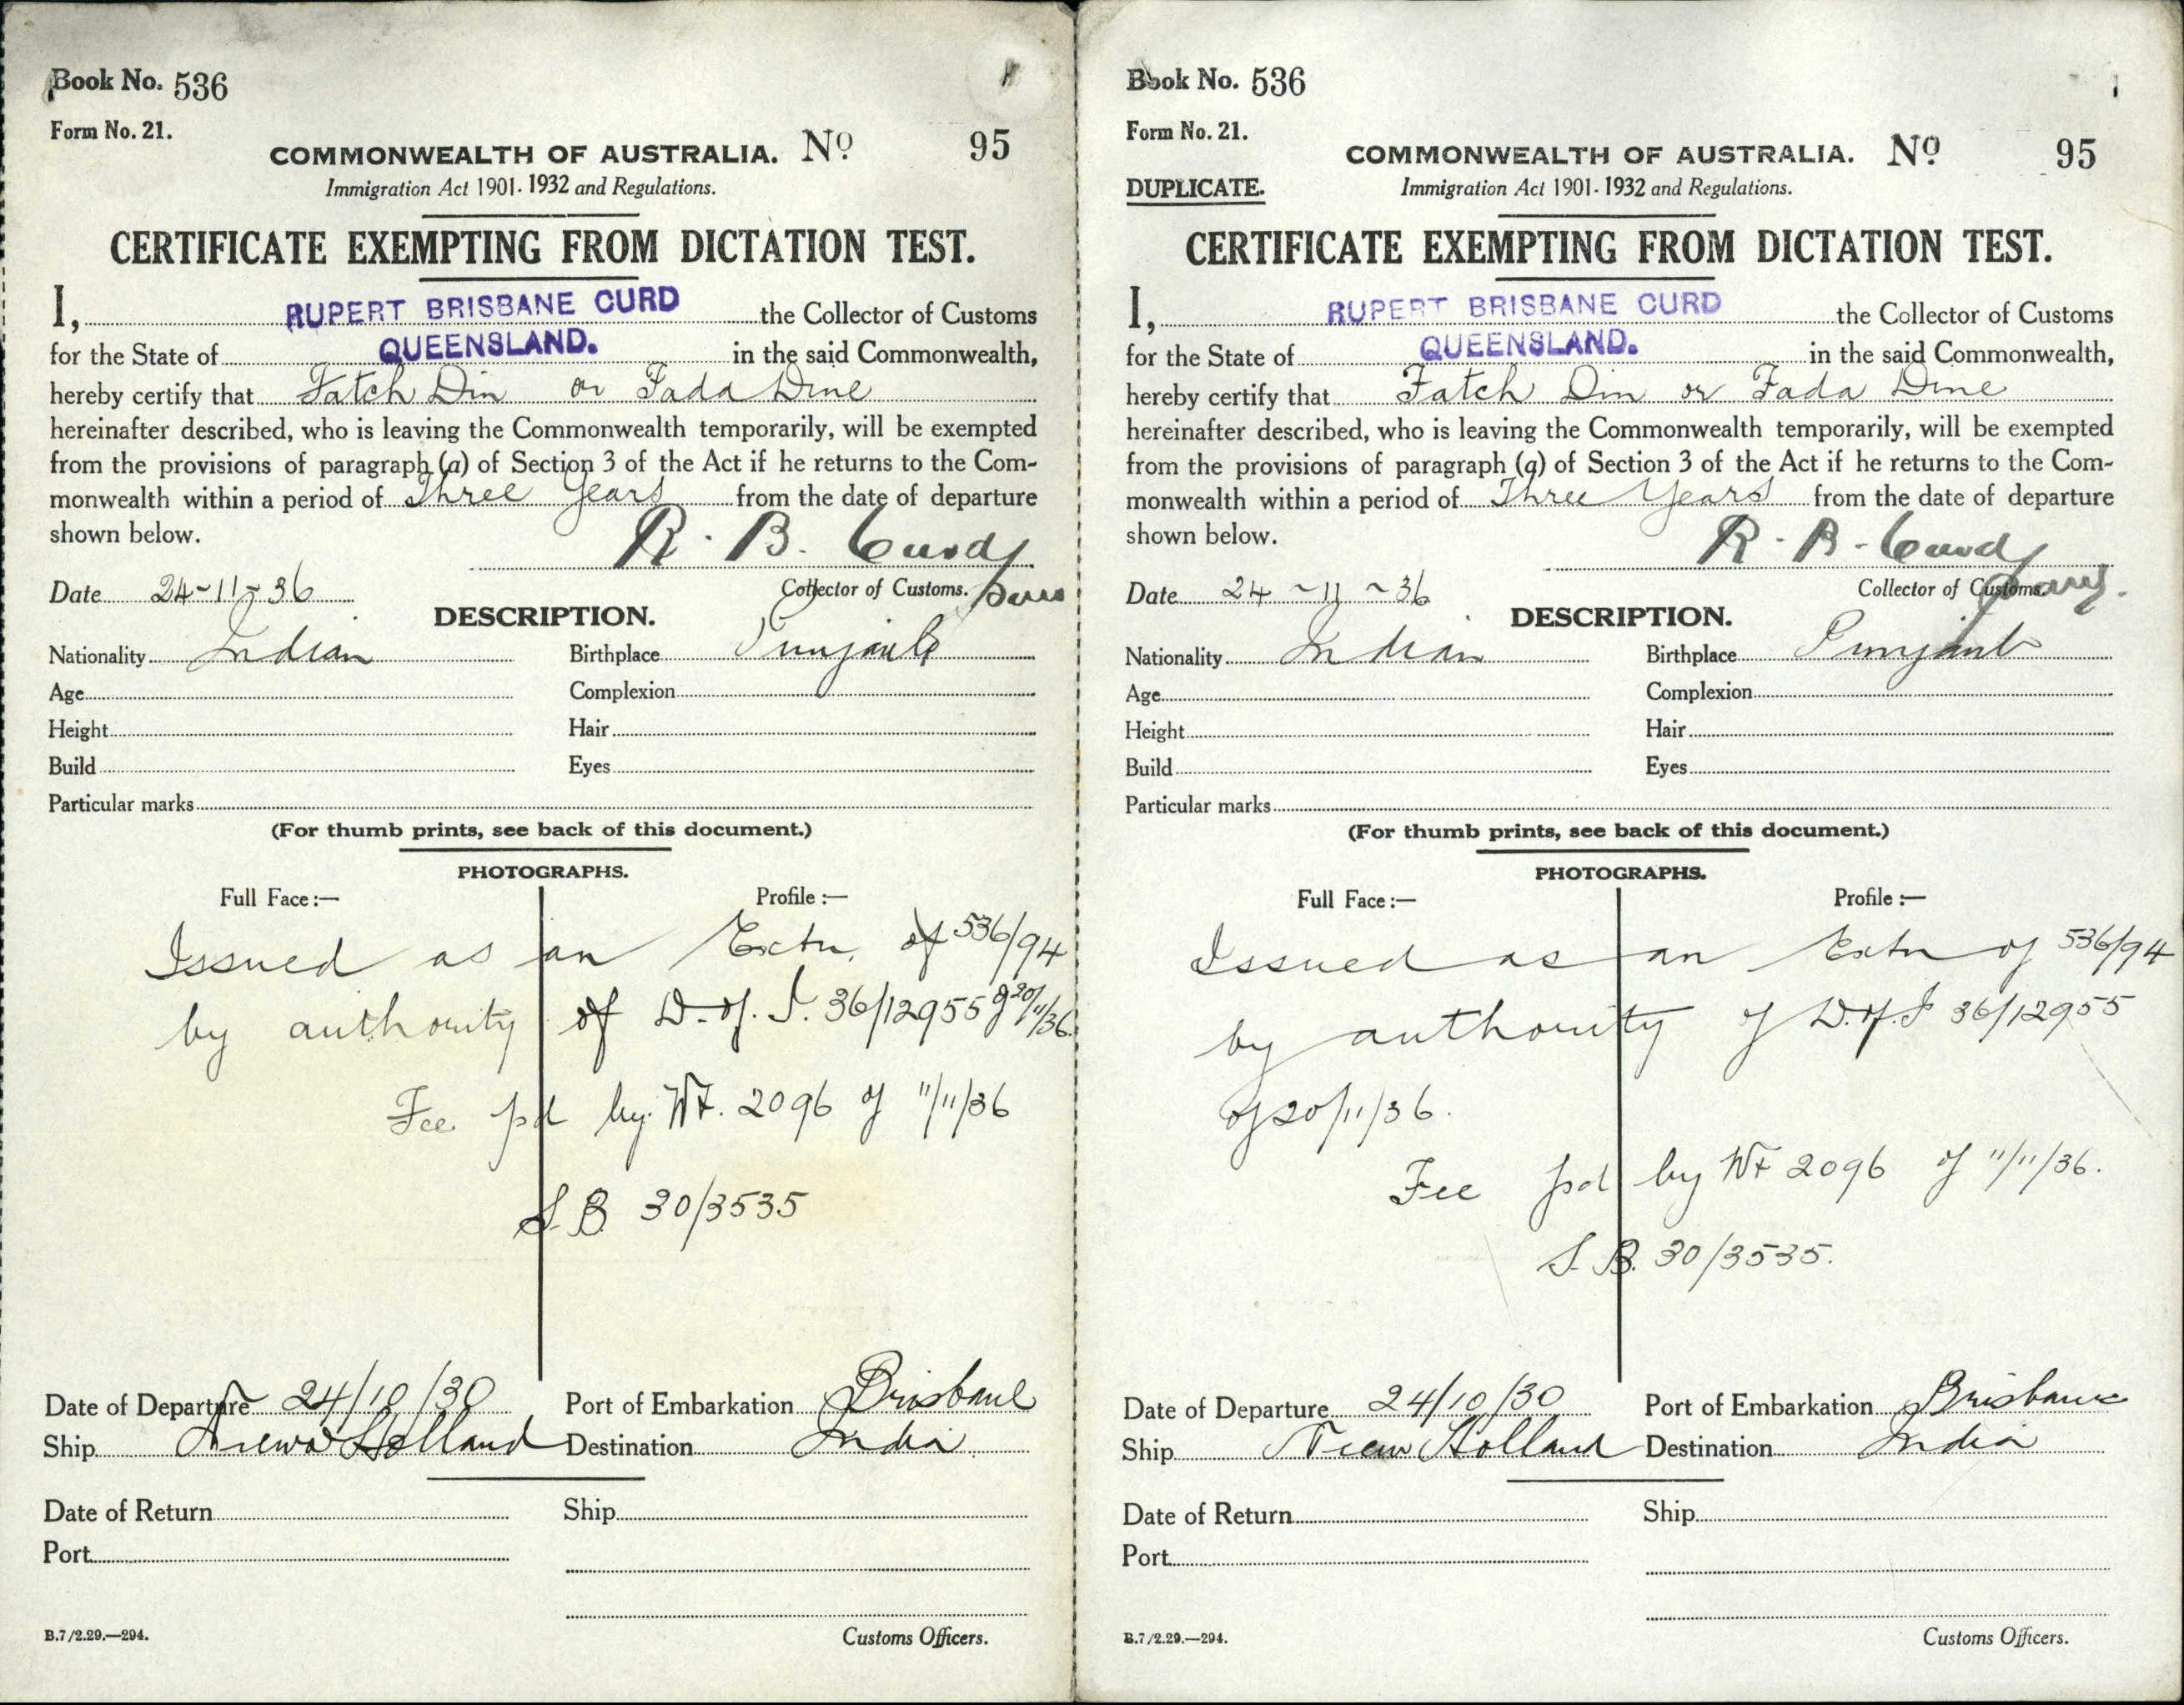 Book No. 536
Form No. 21.
COMMONWEALTH OF AUSTRALIA. No 95
Immigration Act 1901-1932 and Regulations.
CERTIFICATE EXEMPTING FROM DICTATION TEST.
I, RUPERT BRISBANE CURD the Collector of Customs
for the State of QUEENSLAND. in the said Commonwealth,
hereby certify that Fatch Din or Fada Dine
hereinafter described, who is leaving the Commonwealth temporarily, will be exempted
from the provisions of paragraph (a) of Section 3 of the Act if he returns to the Com-
monwealth within a period of Three Years from the date of departure
shown below.
R. B. Curd
Date 24-11-36 Collector of Customs.
DESCRIPTION.
Nationality Indian Birthplace Punjaub
Age Complexion
Height Hair
Build Eyes
Particular marks
(For thumb prints, see back of this document.)
PHOTOGRAPHS.
Full Face:— Profile:—
Issued as an Extn. of 536/94
by authority of D. of I. 36/12955 of 20/11/36.
Fee pd by Wt. 2096 of 11/11/36
S.B. 30/3535
Date of Departure 24/10/30 Port of Embarkation Brisbane
Ship Nieuw Holland Destination India
Date of Return Ship
Port
B.7/2.29.—294. Customs Officers.
Book No. 536
Form No. 21.
COMMONWEALTH OF AUSTRALIA. No 95
DUPLICATE. Immigration Act 1901-1932 and Regulations.
CERTIFICATE EXEMPTING FROM DICTATION TEST.
I, RUPERT BRISBANE CURD the Collector of Customs
for the State of QUEENSLAND. in the said Commonwealth,
hereby certify that Fatch Din or Fada Dine
hereinafter described, who is leaving the Commonwealth temporarily, will be exempted
from the provisions of paragraph (a) of Section 3 of the Act if he returns to the Com-
monwealth within a period of Three Years from the date of departure
shown below.
R. B. Curd
Date 24-11-36 Collector of Customs.
DESCRIPTION.
Nationality Indian Birthplace Punjaub
Age Complexion
Height Hair
Build Eyes
Particular marks
(For thumb prints, see back of this document.)
PHOTOGRAPHS.
Full Face:— Profile:—
Issued as an Extn of 536/94
by authority of D. of I 36/12955
of 20/11/36.
Fee pd by Wt 2096 of 11/11/36.
S.B. 30/3535.
Date of Departure 24/10/30 Port of Embarkation Brisbane
Ship Nieuw Holland Destination India
Date of Return Ship
Port
B.7/2.29.—294. Customs Officers.